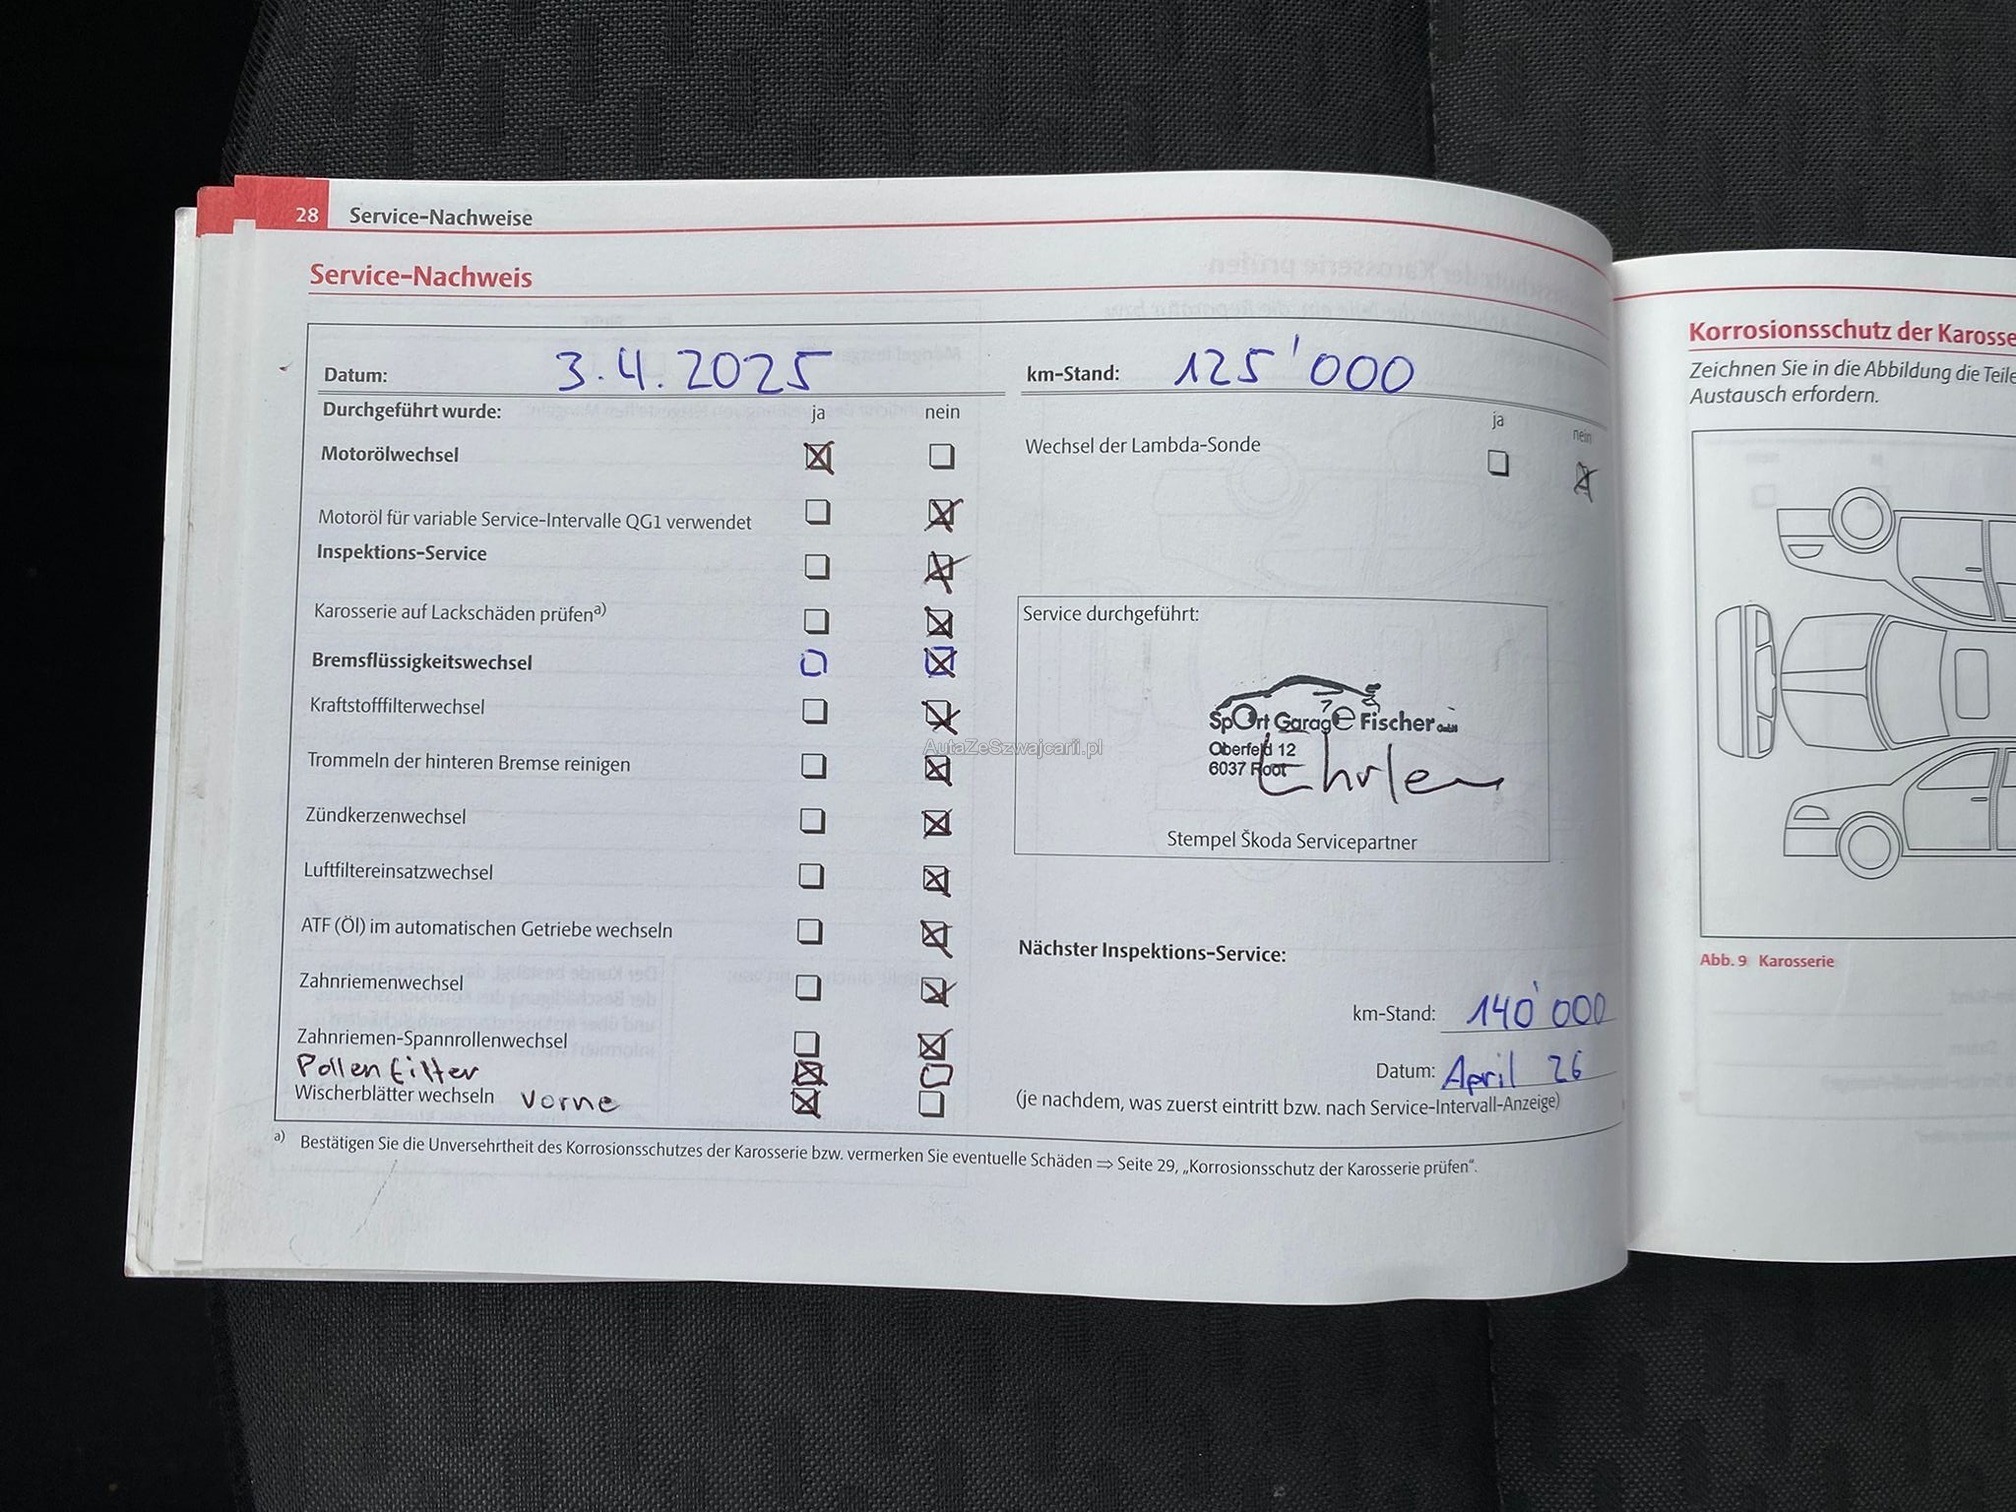 28 Service-Nachweise
Service-Nachweis
Datum: 3.4.2025
km-Stand: 125'000
Durchgeführt wurde: ja nein
Motorölwechsel
Motoröl für variable Service-Intervalle QG1 verwendet
Inspektions-Service
Karosserie auf Lackschäden prüfena)
Bremsflüssigkeitswechsel
Kraftstofffilterwechsel
Trommeln der hinteren Bremse reinigen
Zündkerzenwechsel
Luftfiltereinsatzwechsel
ATF (Öl) im automatischen Getriebe wechseln
Zahnriemenwechsel
Zahnriemen-Spannrollenwechsel
Pollenfilter
Wischerblätter wechseln vorne
ja nein
Wechsel der Lambda-Sonde
Service durchgeführt:
Sport Garage Fischer GmbH
Oberfeld 12
6037 Root
Stempel Škoda Servicepartner
Nächster Inspektions-Service:
km-Stand: 140'000
Datum: April 26
(je nachdem, was zuerst eintritt bzw. nach Service-Intervall-Anzeige)
a) Bestätigen Sie die Unversehrtheit des Korrosionsschutzes der Karosserie bzw. vermerken Sie eventuelle Schäden ⇒ Seite 29, „Korrosionsschutz der Karosserie prüfen“.
AutaZeSzwajcarii.pl
Korrosionsschutz der Karosse
Zeichnen Sie in die Abbildung die Teile
Austausch erfordern.
Abb. 9 Karosserie